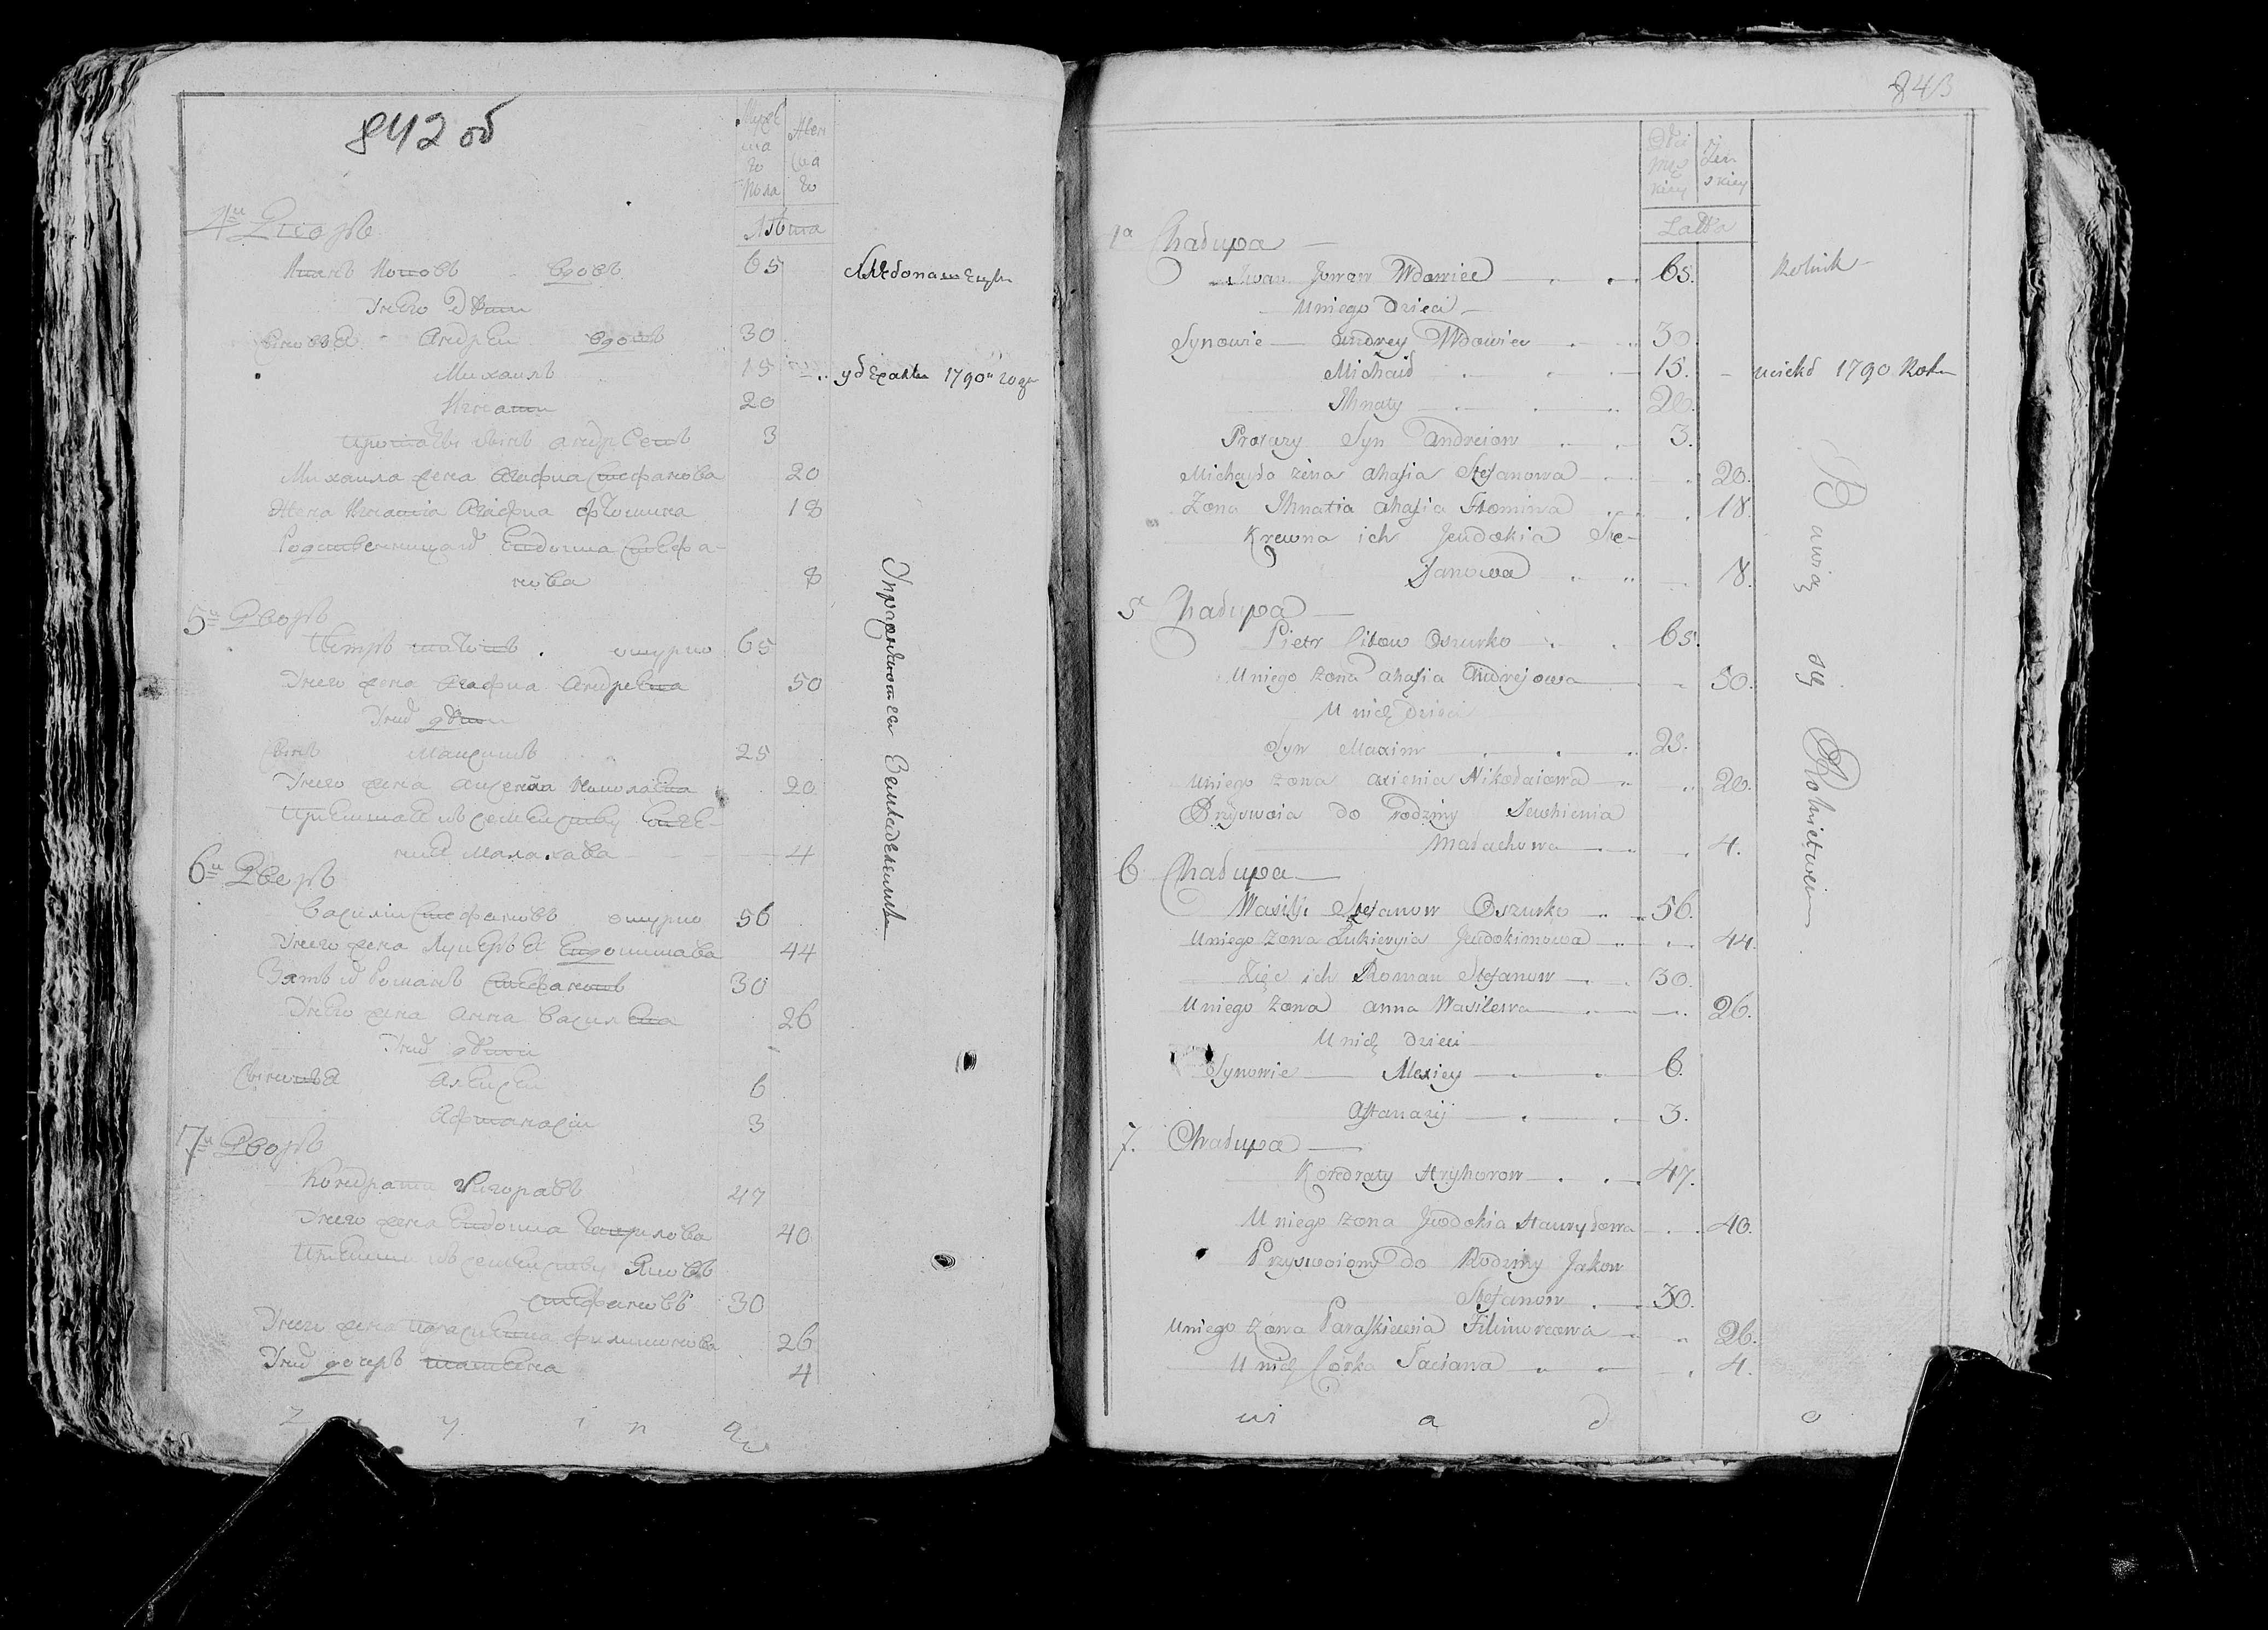 842 об
Мужес
ка
го
пола
Жен
ска
го
Лѣта
4й Дворъ
Иванъ вдовъ 65 хлѣбопашецъ
У него дѣти
Сыновья Андрей вдовъ 30
Михаилъ 15 убежалъ 1790го года
Игнатий 20
сынъ Андреевъ 3
Михаила жена Агафиа Стефанова 20
Жена Игнатія Агафиа Фомина 18
Родственница их Евдокиа Стефа-
нова 8
5й Дворъ
Петръ ошурко 65
У него жена Агафиа Андреева 50
У них дѣти
Сынъ Максимъ 25
У него жена Аксенья Николаева 20
въ семейству Евге-
ния Малахава 4
6й Дворъ
Василій Стефановъ ошурко 56
У него жена Лукерья Евдокимава 44
Зять их Романъ Стефановъ 30
У него жена Анна Васильева 26
У них дѣти
Сыновья Алексей 6
Афанасіи 3
7й Дворъ
Кондрати Григоравъ 47
У него жена Евдокиа Гаврилова 40
въ семейству Яковъ
Стефановъ 30
У него жена Филимонова 26
У них дочерь Татьяна 4
Упражняются Земледелиемъ
z y i n
843
Płci
męz
kiey
Zeń
skiey
Latta
4a Chałupa
Iwan Jowow Wdowiec 65. Rolnik
U niego Dzieci
Synowie Andrey Wdowiec 30
Michaił 15. uciekł 1790 Roku
Ihnaty 20.
Syn Andreiow 3.
Michayła żena Ahafia Stefanowa 20.
Zona Ihnatia Ahafia Fłomina 18
Krewna ich Jeudokia Ste-
fanowa 18.
5 Chałupa
Pietr Oszurko 65.
U niego żona Ahafia Andrejowa 50.
U nich dzieci
Syn Maxim 23.
U niego żona Axienia Nikołaiowa 20.
Przyswoia do rodziny Jewhienia
Małachowa 4.
6 Chałupa
Wasilji Stefanow Oszurko 56.
U niego żona Łukieryia Jeudokimowa 44.
Zięć ich Roman Stefanow 30.
U niego żona Anna Wasilewa 26.
U nich dzieci
Synowie Alexiey 6.
Aftanazij 3.
7. Chałupa
Kondraty Hryhorow 47.
U niego żona Jeudokia Hawryłowa 40.
Przyswoiony do Rodziny Jakow
Stefanow 30.
U niego żona Paraskiewia Filimonowa 26.
U nich Córka Taciana 4.
Bawią się Rolnictwem
wi a d o